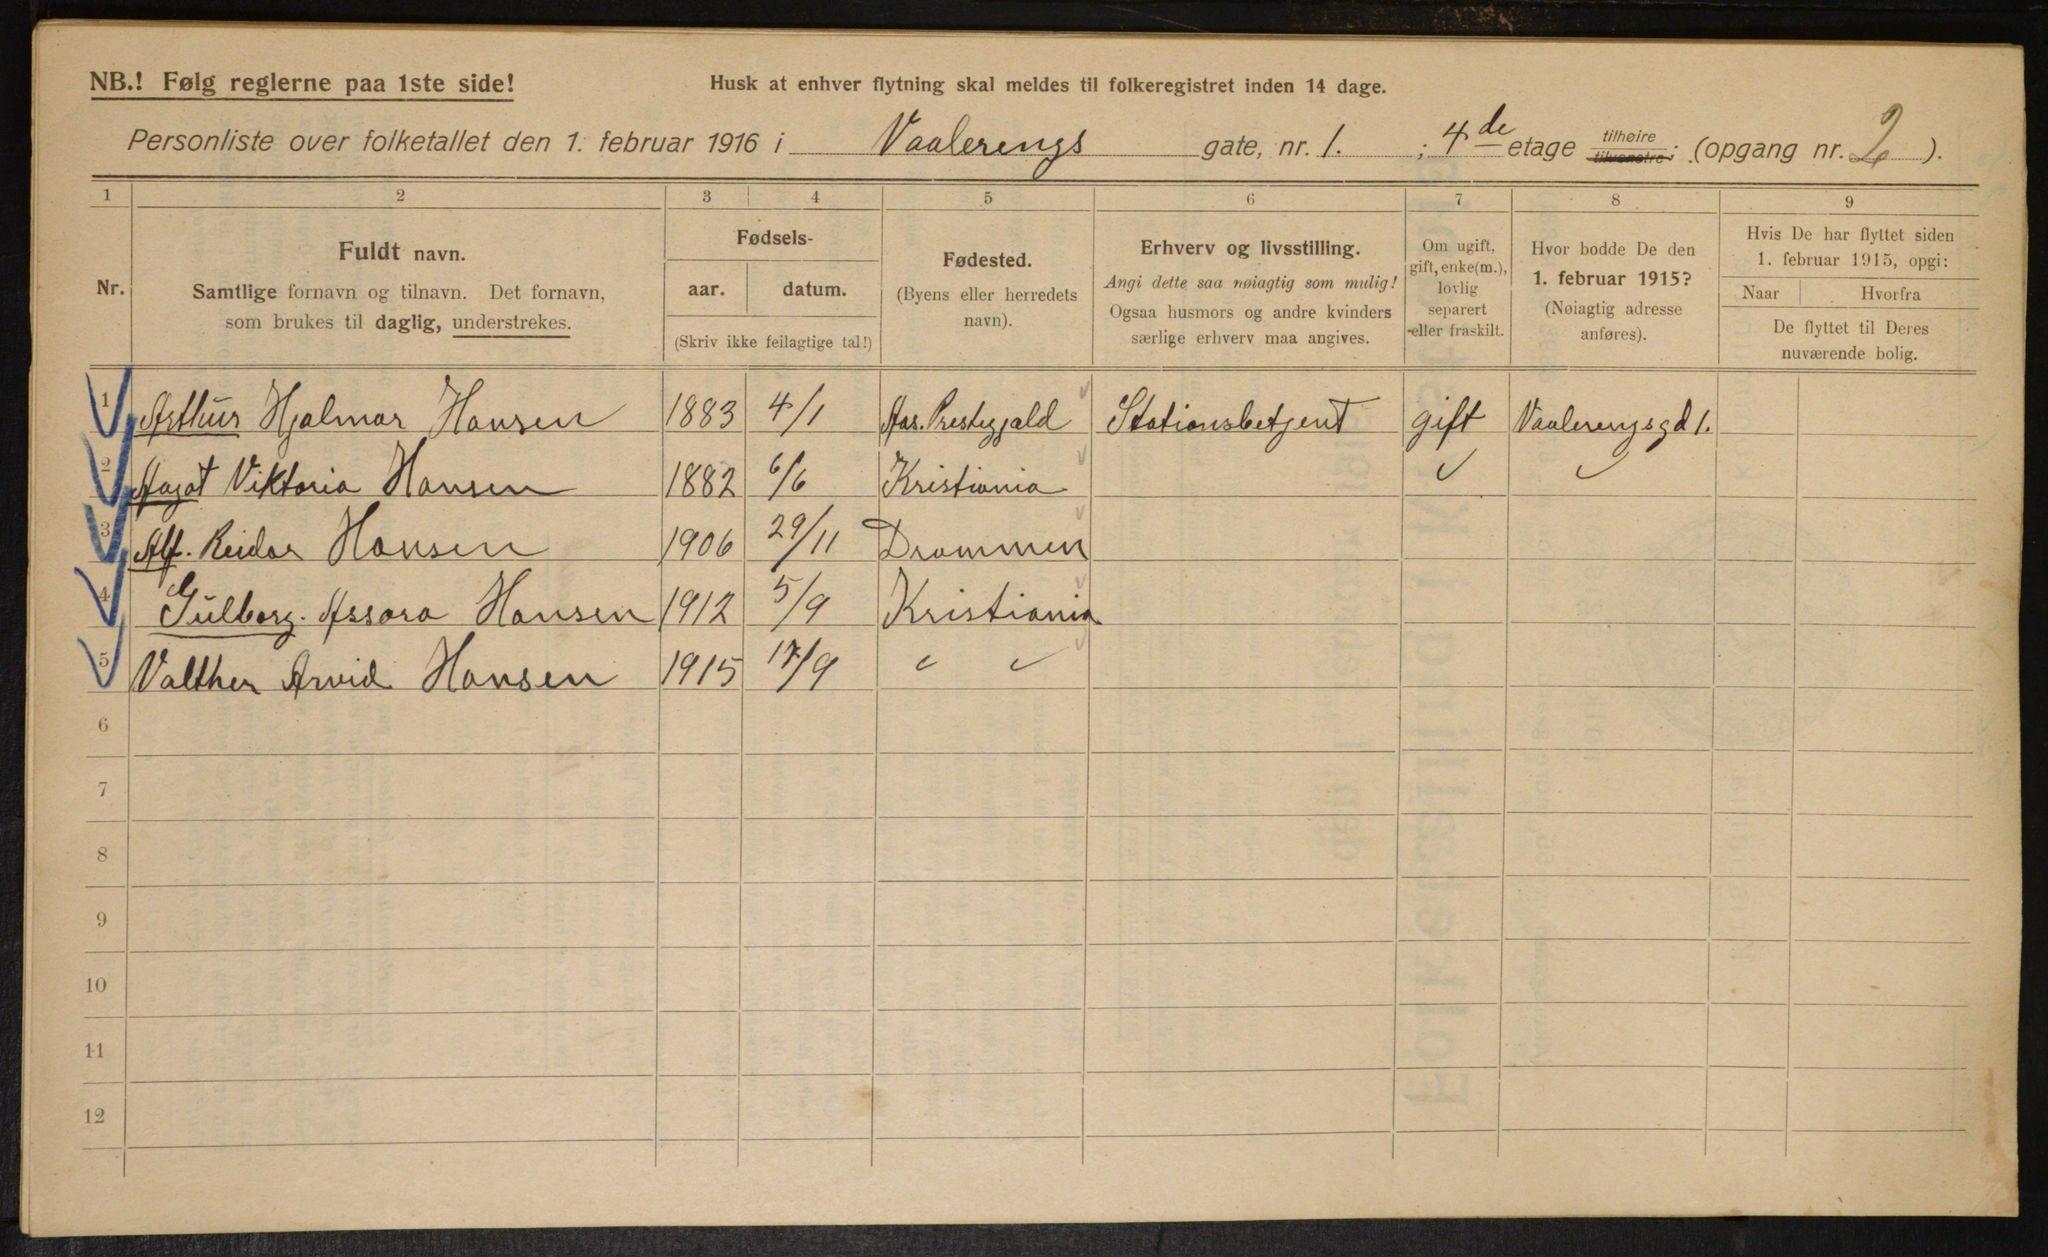 NB.! Følg reglerne paa 1ste side!
Husk at enhver flytning skal meldes til folkeregistret inden 14 dage.
Personliste over folketallet den 1. februar 1916 i Vaalerengs gate, nr. 1. ; 4de etage tilhøire tilvenstre; (opgang nr. 2 ).
1 2 3 4 5 6 7 8 9
Nr.
Fuldt navn.
Samtlige fornavn og tilnavn. Det fornavn,
som brukes til daglig, understrekes.
Fødsels-
aar. datum.
(Skriv ikke feilagtige tal!)
Fødested.
(Byens eller herredets
navn).
Erhverv og livsstilling.
Angi dette saa nøiagtig som mulig!
Ogsaa husmors og andre kvinders
særlige erhverv maa angives.
Om ugift,
gift, enke(m.),
lovlig
separert
eller fraskilt.
Hvor bodde De den
1. februar 1915?
(Nøiagtig adresse
anføres).
Hvis De har flyttet siden
1. februar 1915, opgi:
Naar Hvorfra
De flyttet til Deres
nuværende bolig.
1 Arthur Hjalmar Hansen 1883 4/1 Aas. Prestegjald Stationsbetjent gift Vaalerengsgd 1.
2 Aagot Viktoria Hansen 1882 6/6 Kristiania
3 Alf. Reidar Hansen 1906 29/11 Drammen
4 Gulborg. Assora Hansen 1912 5/9 Kristiania
5 Valther Arvid Hansen 1915 17/9 " "
6
7
8
9
10
11
12